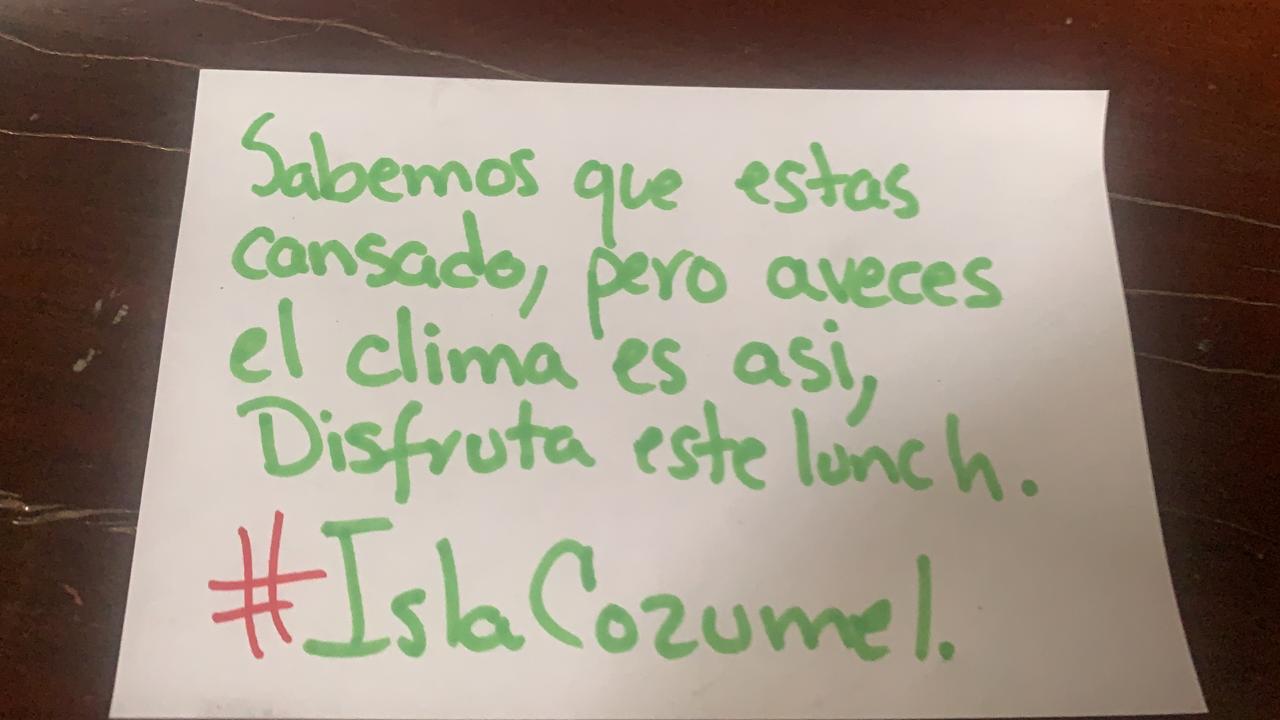 Sabemos que estas
cansado, pero aveces
el clima es asi,
Disfruta este lunch.
#IslaCozumel.